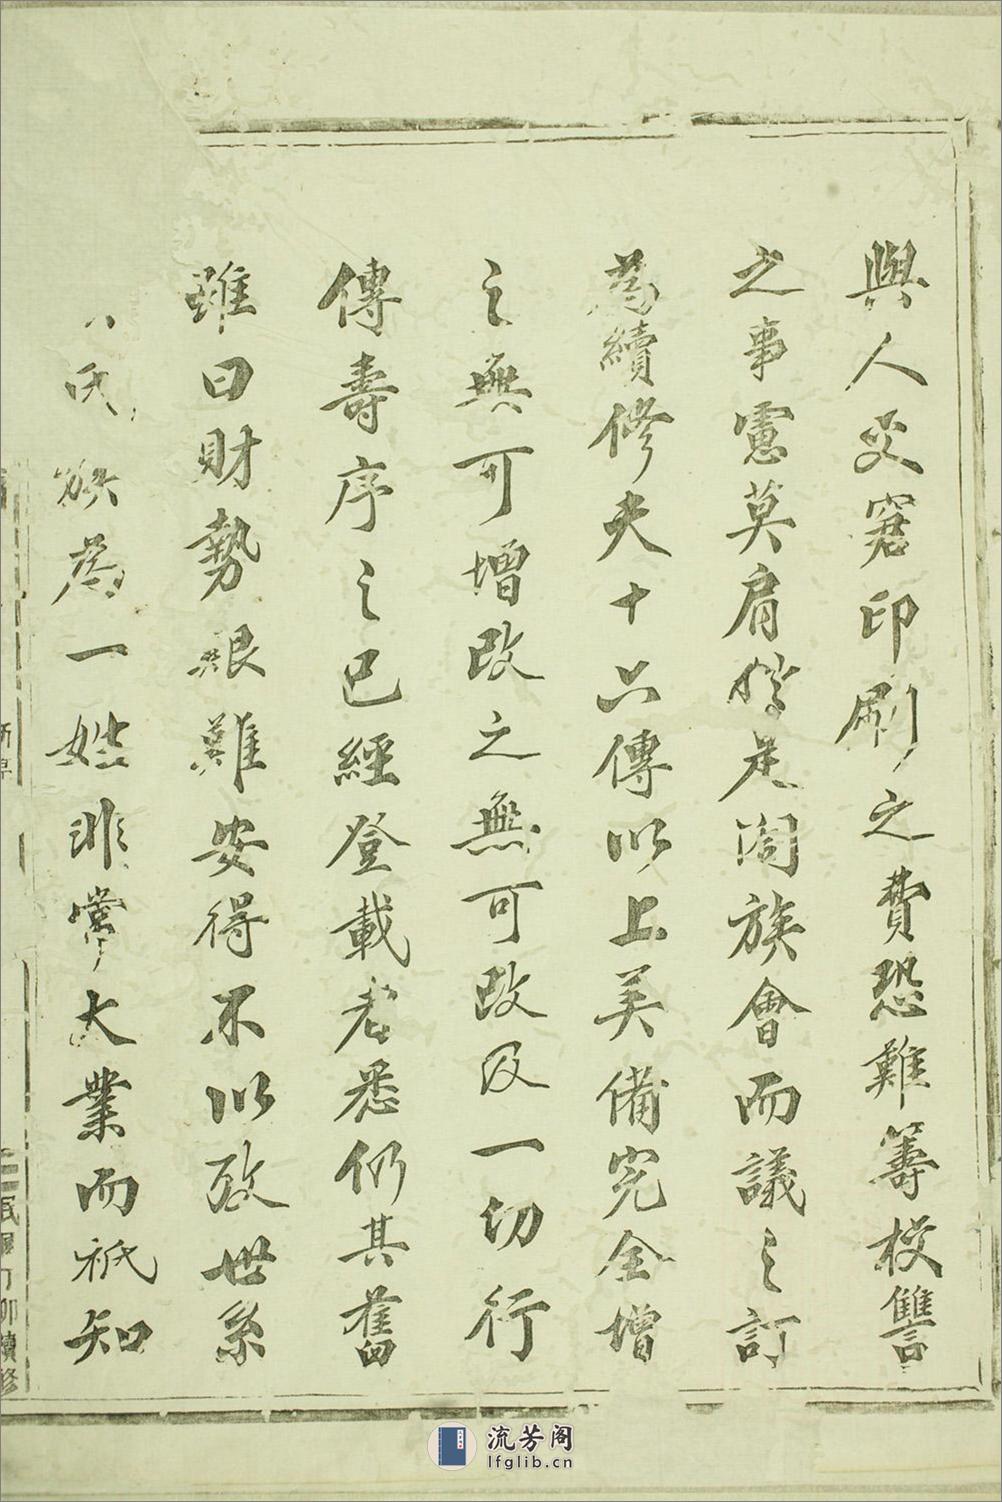 與人交窘印刷之費恐難籌校讐
之事憲莫肩惟是闔族會而議之訂
為續修夫十六傳以上美備完全增
之無可增改之無可改及一切行
傳壽序之已經登載者悉仍其舊
雖曰財勢艱難安得不以致世系
氏族為一姓非常大業而祇知
民國丁卯續修
流芳阁
lfglib.cn